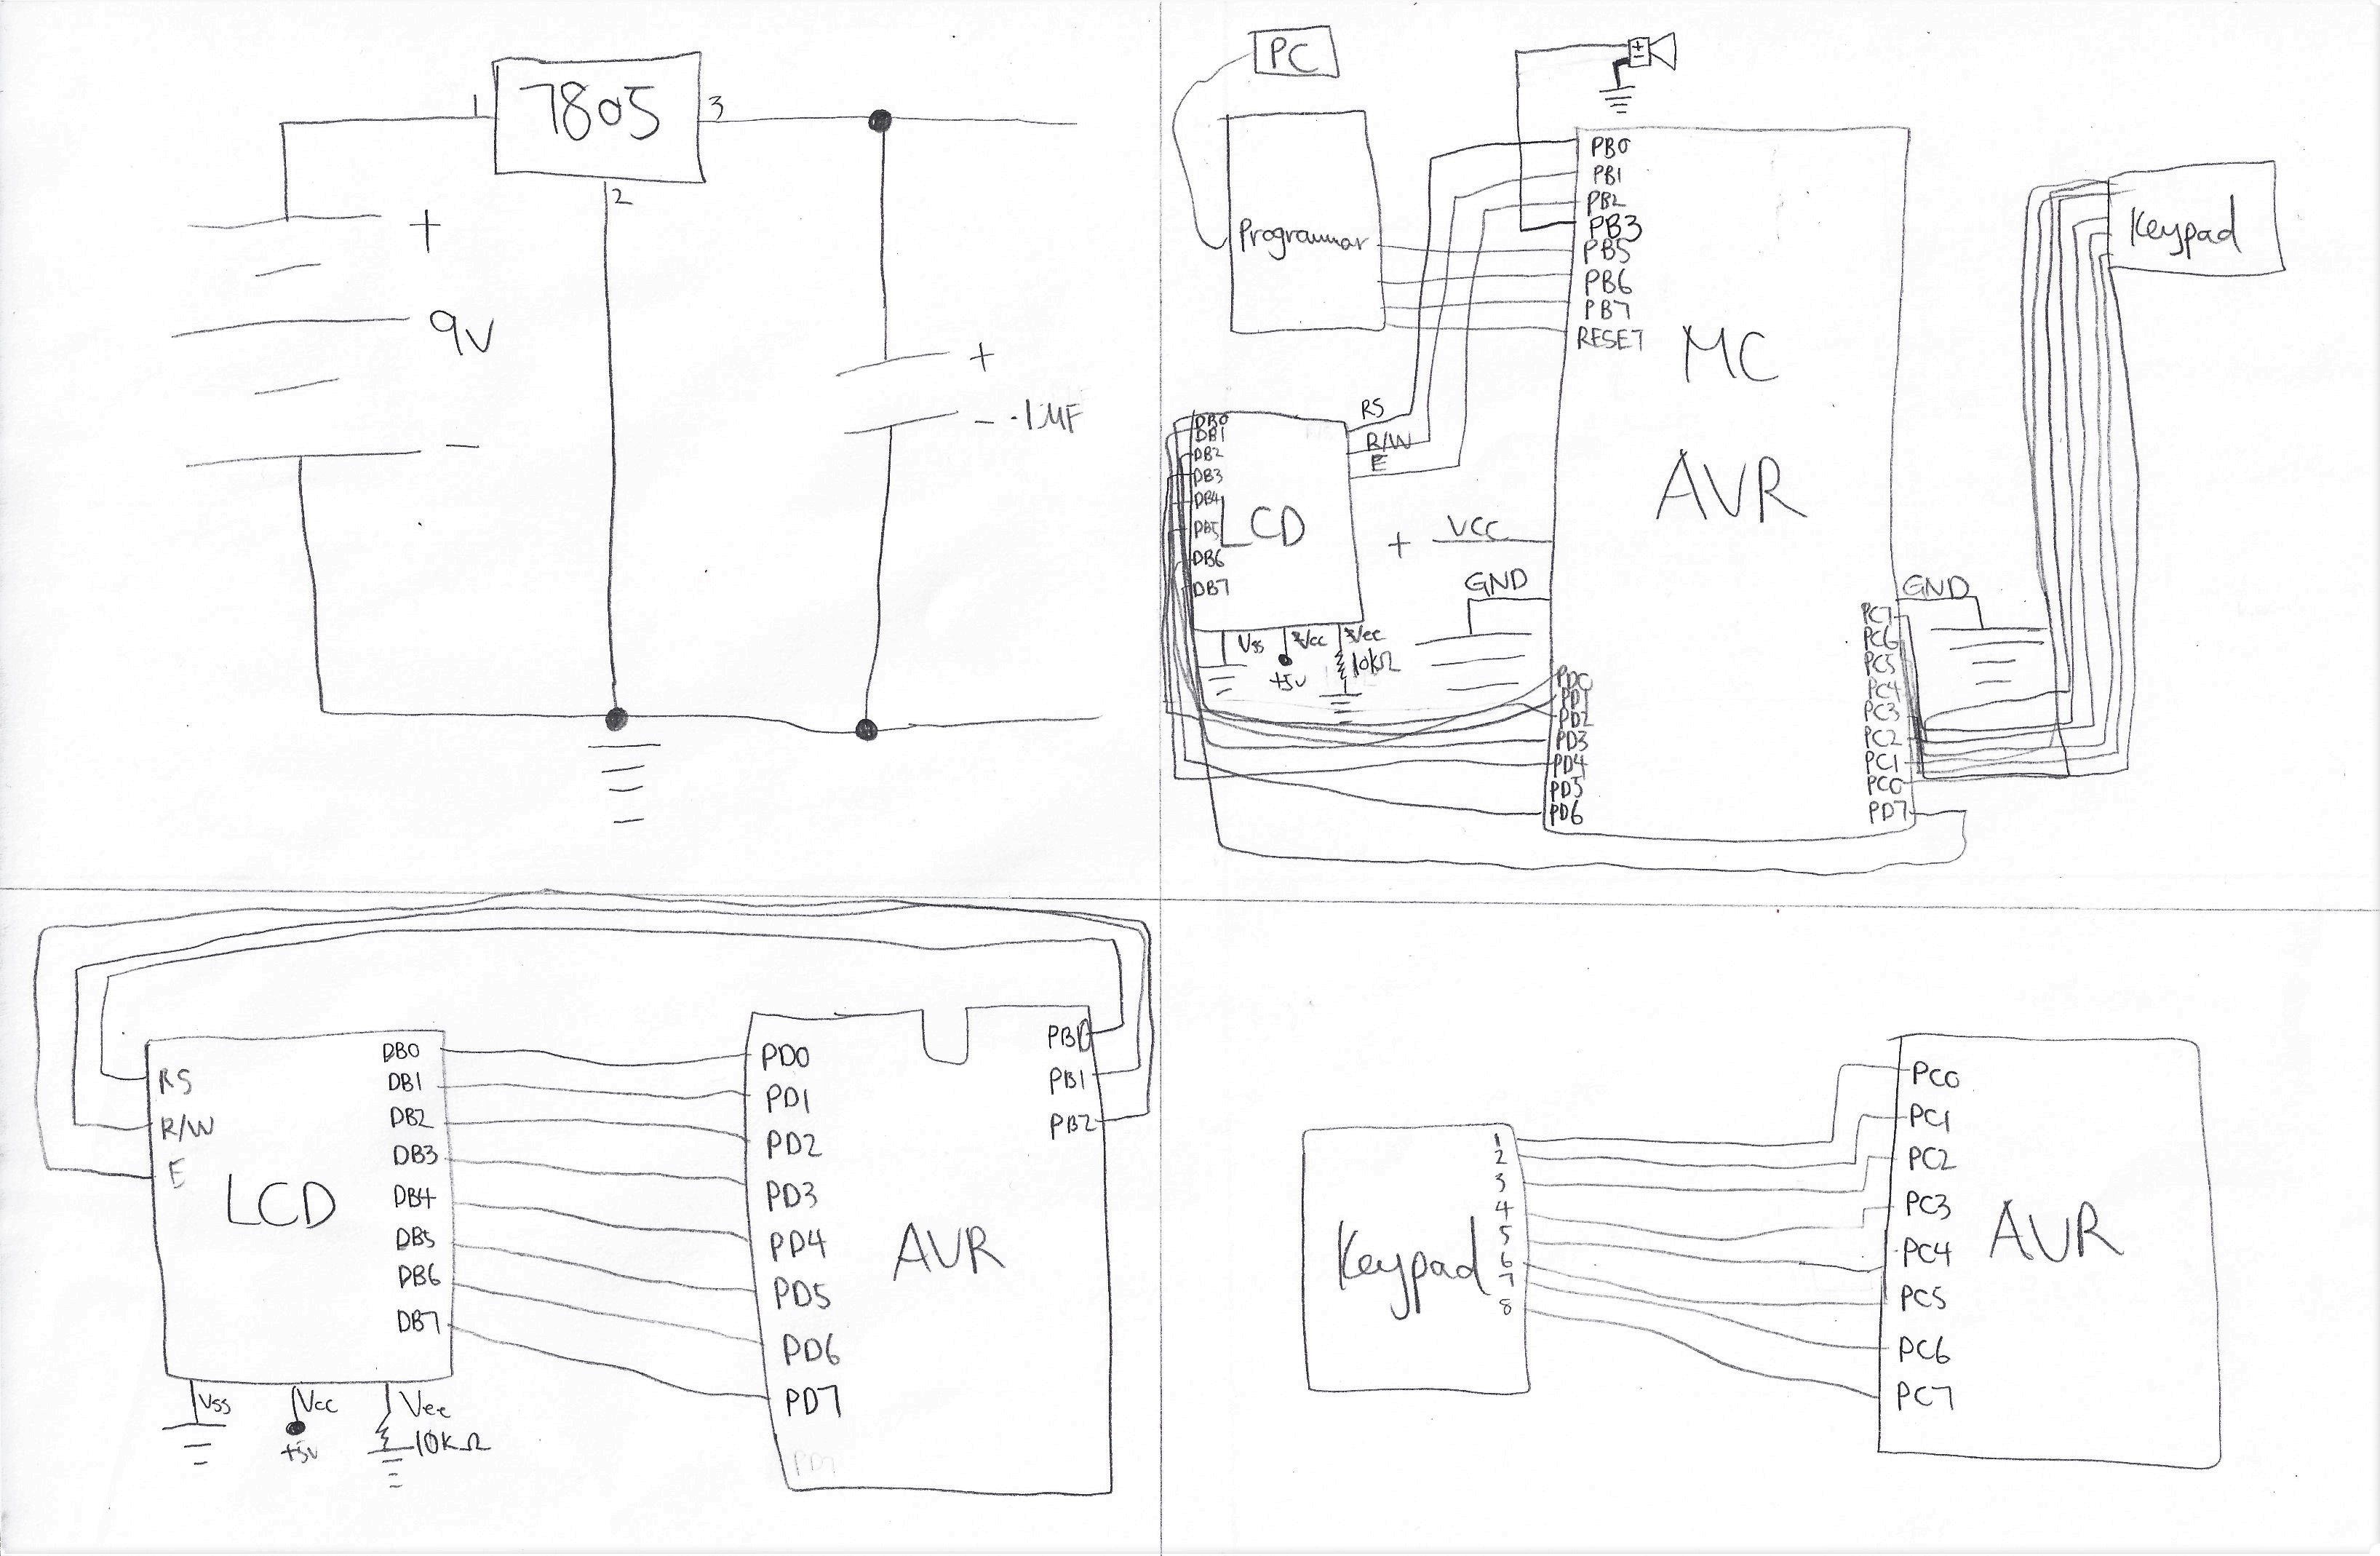 1
7805
3
2
+
9V
-
+
- .1MF
PC
Programmar
PB0
PB1
PB2
PB3
PB5
PB6
PB7
RESET
MC
AVR
Keypad
RS
R/W
E
DB0
DB1
DB2
DB3
DB4
DB5
DB6
DB7
LCD
+ VCC
GND
Vss
Vcc
Vee
+5v
10kΩ
PD0
PD1
PD2
PD3
PD4
PD5
PD6
GND
PC7
PC6
PC5
PC4
PC3
PC2
PC1
PC0
PD7
RS
R/W
E
LCD
DB0
DB1
DB2
DB3
DB4
DB5
DB6
DB7
Vss
Vcc
Vee
+5v
10KΩ
PD0
PD1
PD2
PD3
PD4
PD5
PD6
PD7
PD7
AVR
PB0
PB1
PB2
Keypad
1
2
3
4
5
6
7
8
PC0
PC1
PC2
PC3
PC4
PC5
PC6
PC7
AVR